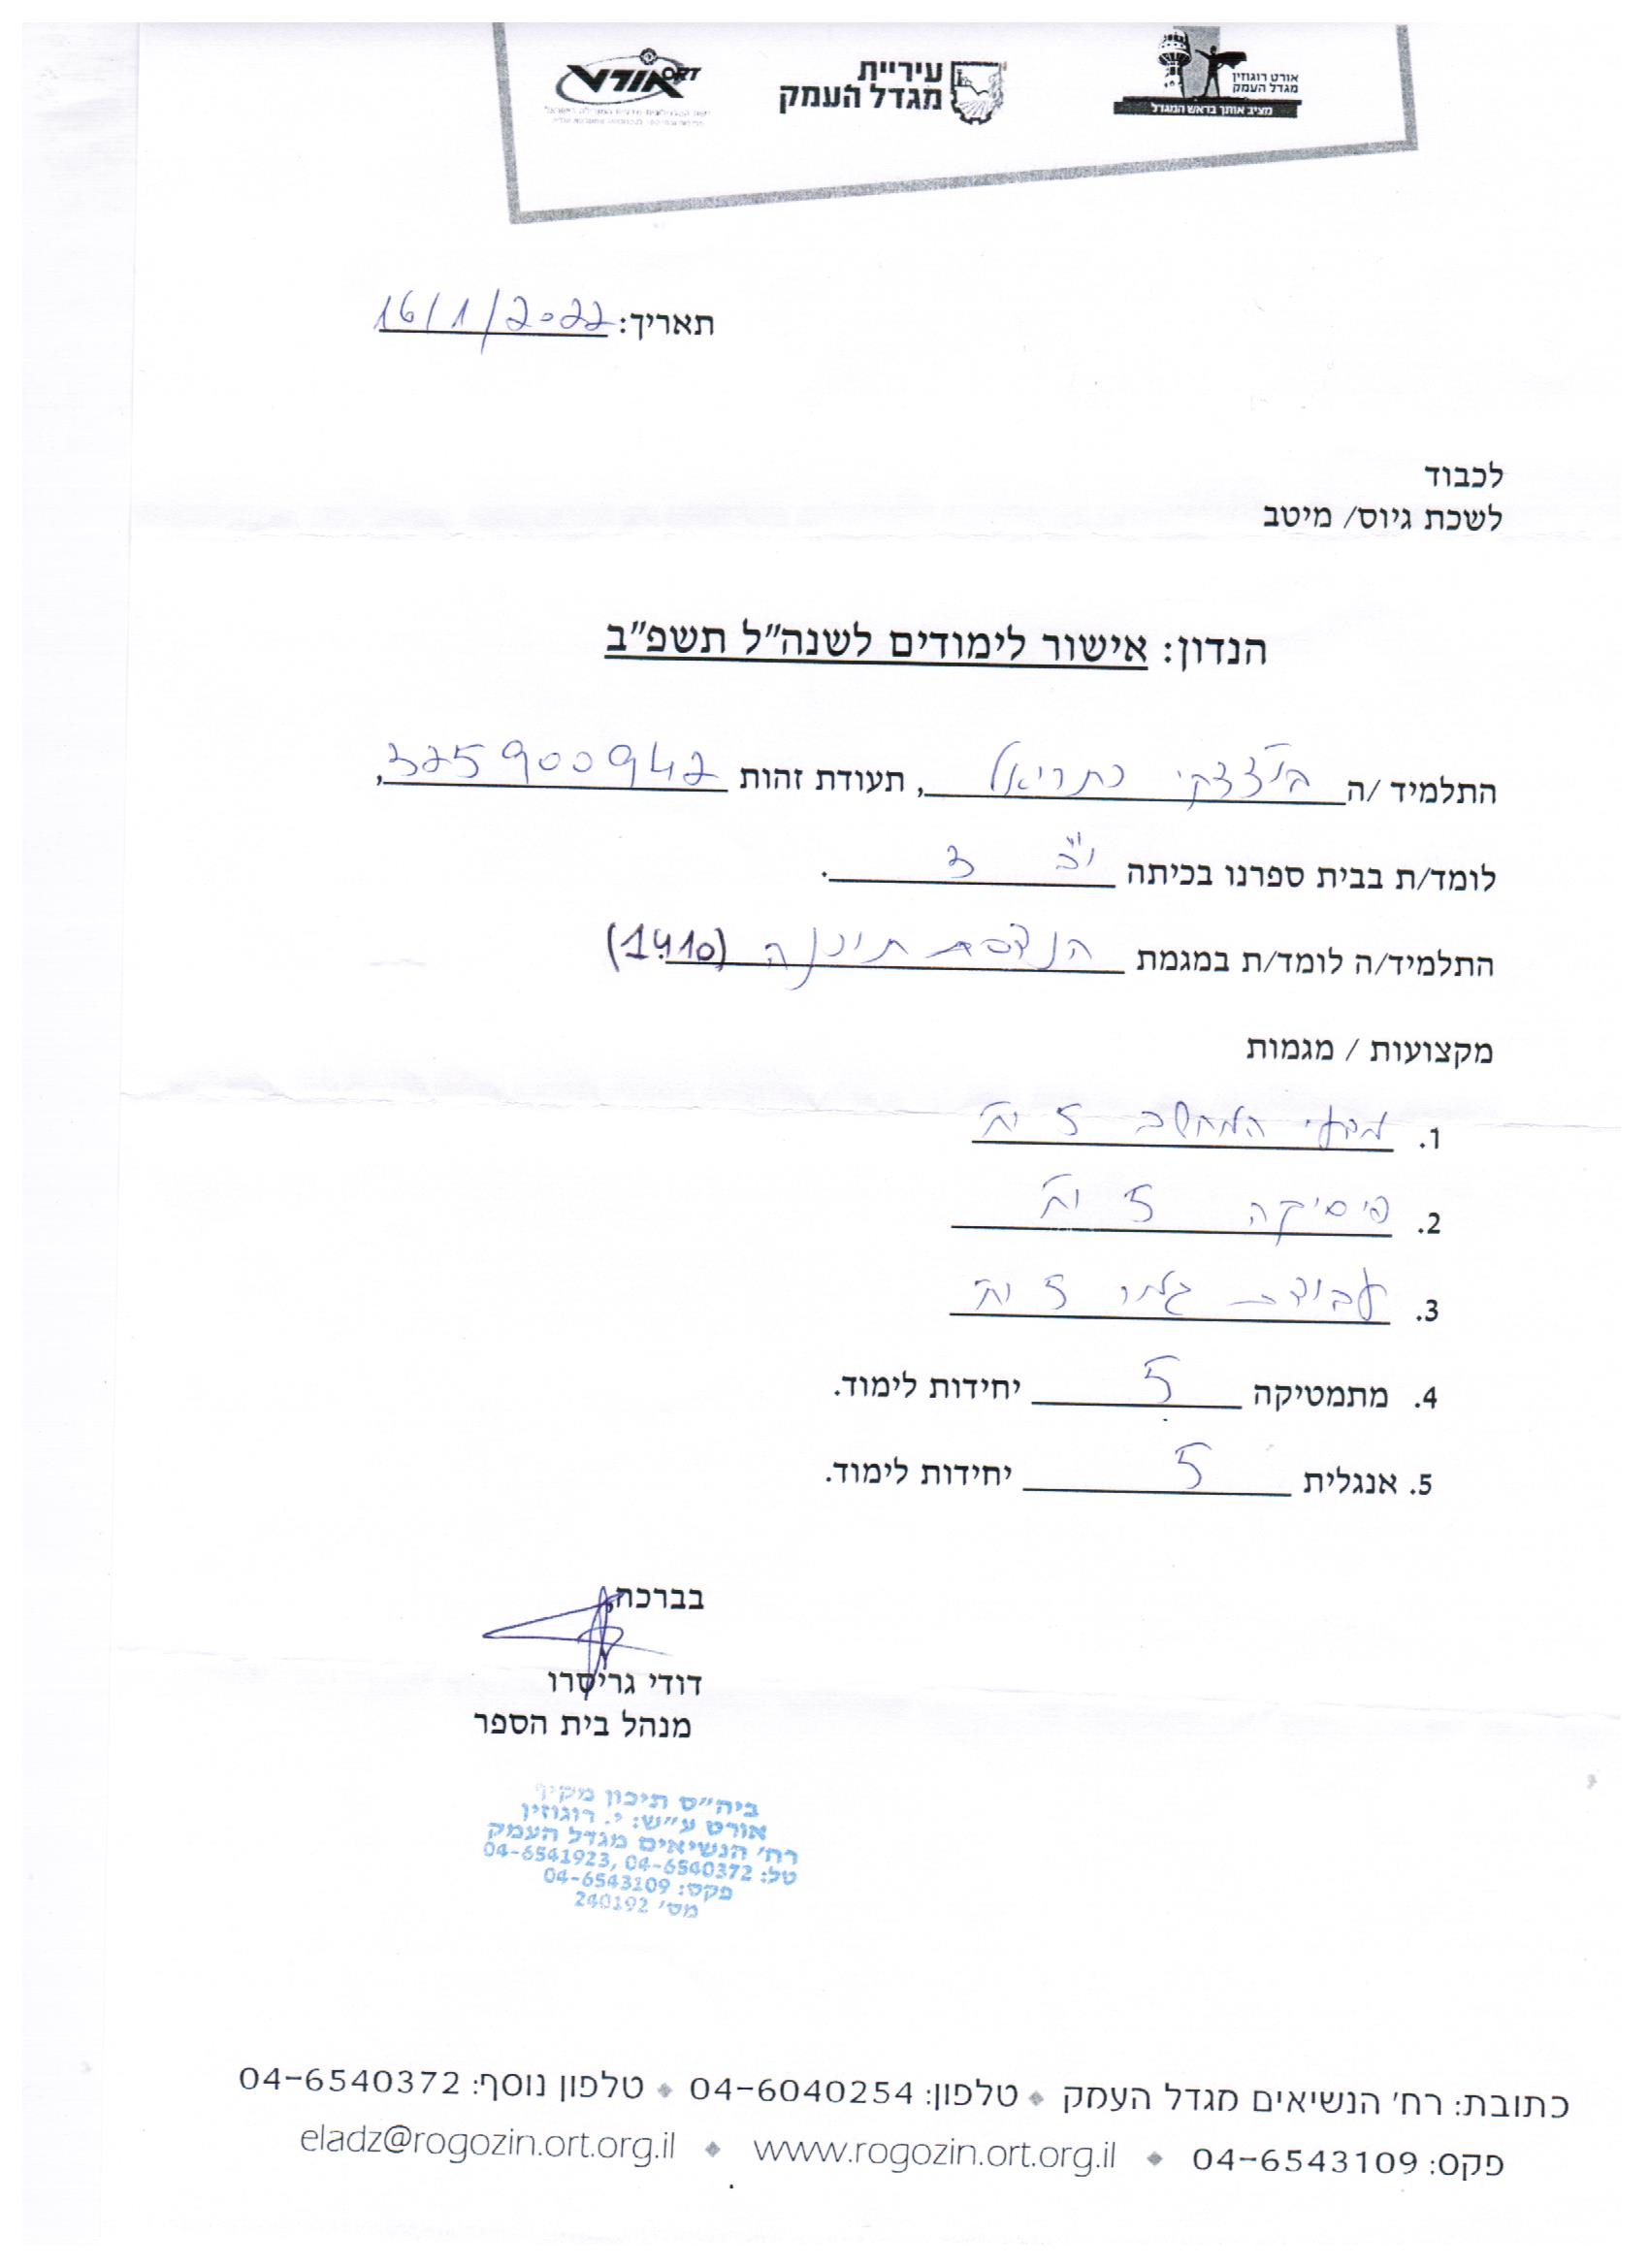 אורט ORT
עיריית
מגדל העמק
אורט רוגוזין
מגדל העמק
מציב אותך בראש המגדל
תאריך: 16/1/2022
לכבוד
לשכת גיוס/ מיטב
הנדון: אישור לימודים לשנה"ל תשפ"ב
התלמיד /ה כתריאל, תעודת זהות 325900942,
לומד/ת בבית ספרנו בכיתה י"ב 3.
התלמיד/ה לומד/ת במגמת הנדסת תוכנה (1410)
מקצועות / מגמות
1. מדעי המחשב 5 יח'
2. פיסיקה 5 יח'
3. עבודת גמר 5 יח'
4. מתמטיקה 5 יחידות לימוד.
5. אנגלית 5 יחידות לימוד.
בברכה,
דודי גריסרו
מנהל בית הספר
ביה"ס תיכון מקיף
אורט ע"ש: י. רוגוזין
רח' הנשיאים מגדל העמק
טל: 04-6541923, 04-6540372
פקס: 04-6543109
מס' 240192
כתובת: רח' הנשיאים מגדל העמק ◆ טלפון: 04-6040254 ◆ טלפון נוסף: 04-6540372
פקס: 04-6543109 ◆ www.rogozin.ort.org.il ◆ eladz@rogozin.ort.org.il